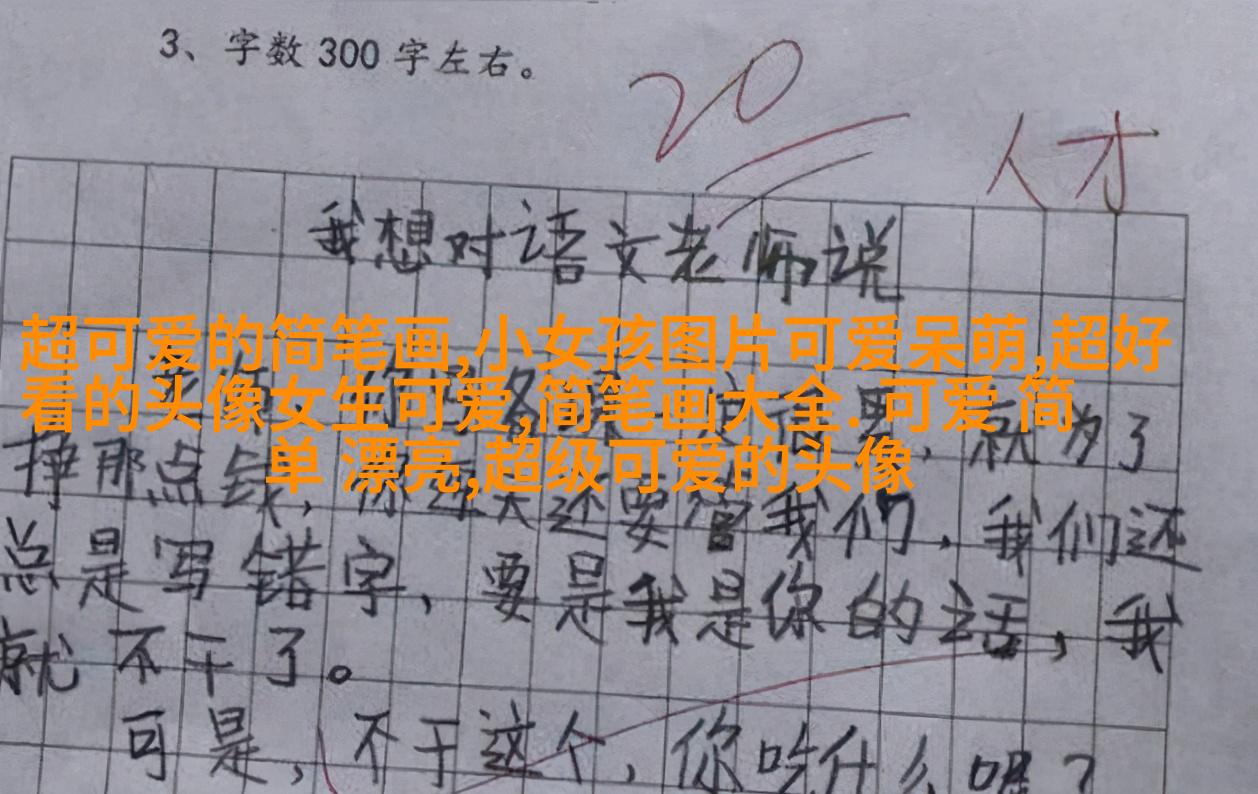 3、字数300字左右。
20
人才
我想对语文老师说
超可爱的简笔画,小女孩图片可爱呆萌,超好
看的头像女生可爱,简笔画大全. 可爱 简
单 漂亮,超级可爱的头像
就为了
挣那点钱，你每天还要管我们，我们还
总是写错字，要是我是你的话，我
就不干了。
可是，不干这个，你吃什么呢？